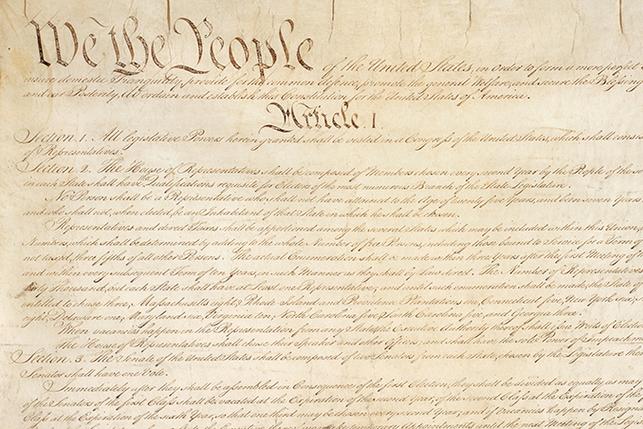 We the People of the United States, in Order to form a more perfect
insure domestic Tranquility, provide for the common defence, promote the general Welfare, and secure the Blessing
and our Posterity, do ordain and establish this Constitution for the United States of America.
Article. I.
Section. 1. All legislative Powers herein granted shall be vested in a Congress of the United States, which shall consis
of Representatives.
Section. 2. The House of Representatives shall be composed of Members chosen every second Year by the People of the se
in each State shall have Qualifications requisite for Electors of the most numerous Branch of the State Legislature.
No Person shall be a Representative who shall not have attained to the Age of twenty five Years, and been seven Years
and who shall not, when elected, be an Inhabitant of that State in which he shall be chosen.
Representatives and direct Taxes shall be apportioned among the several States which may be included within this Union,
Numbers, which shall be determined by adding to the whole Number of free Persons, including those bound to Service for a Term
not taxed, three fifths of all other Persons. The actual Enumeration shall be made within three Years after the first Meeting of
and within every subsequent Term of ten Years, in such Manner as they shall by Law direct. The Number of Representative
thirty Thousand, but each State shall have at Least one Representative; and until such enumeration shall be made, the State of
entitled to chuse three, Massachusetts eight, Rhode Island and Providence Plantations one, Connecticut five, New York six,
eight, Delaware one, Maryland six, Virginia ten, North Carolina five, South Carolina five, and Georgia three.
When vacancies happen in the Representation from any State, the Executive Authority thereof shall issue Writs of Electi
The House of Representatives shall chuse their Speaker and other Officers; and shall have the sole Power of Impeachme
Section. 3. The Senate of the United States shall be composed of two Senators from each State, chosen by the Legislature th
Senator shall have one Vote.
Immediately after they shall be assembled in Consequence of the first Election, they shall be divided as equally as ma
of the Senators of the first Class shall be vacated at the Expiration of the second Year, of the second Class at the Expiration of the
Class at the Expiration of the sixth Year, so that one third may be chosen every second Year; and if Vacancies happen by Resign